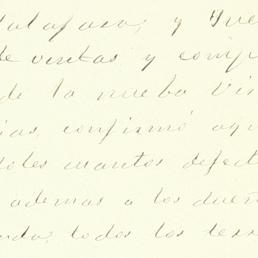 y que
de ventas y comp
de la nueba Vis
ias, confirmó aqu
doles cuantos defect
ademas a los dueñ
nda, todos los terr